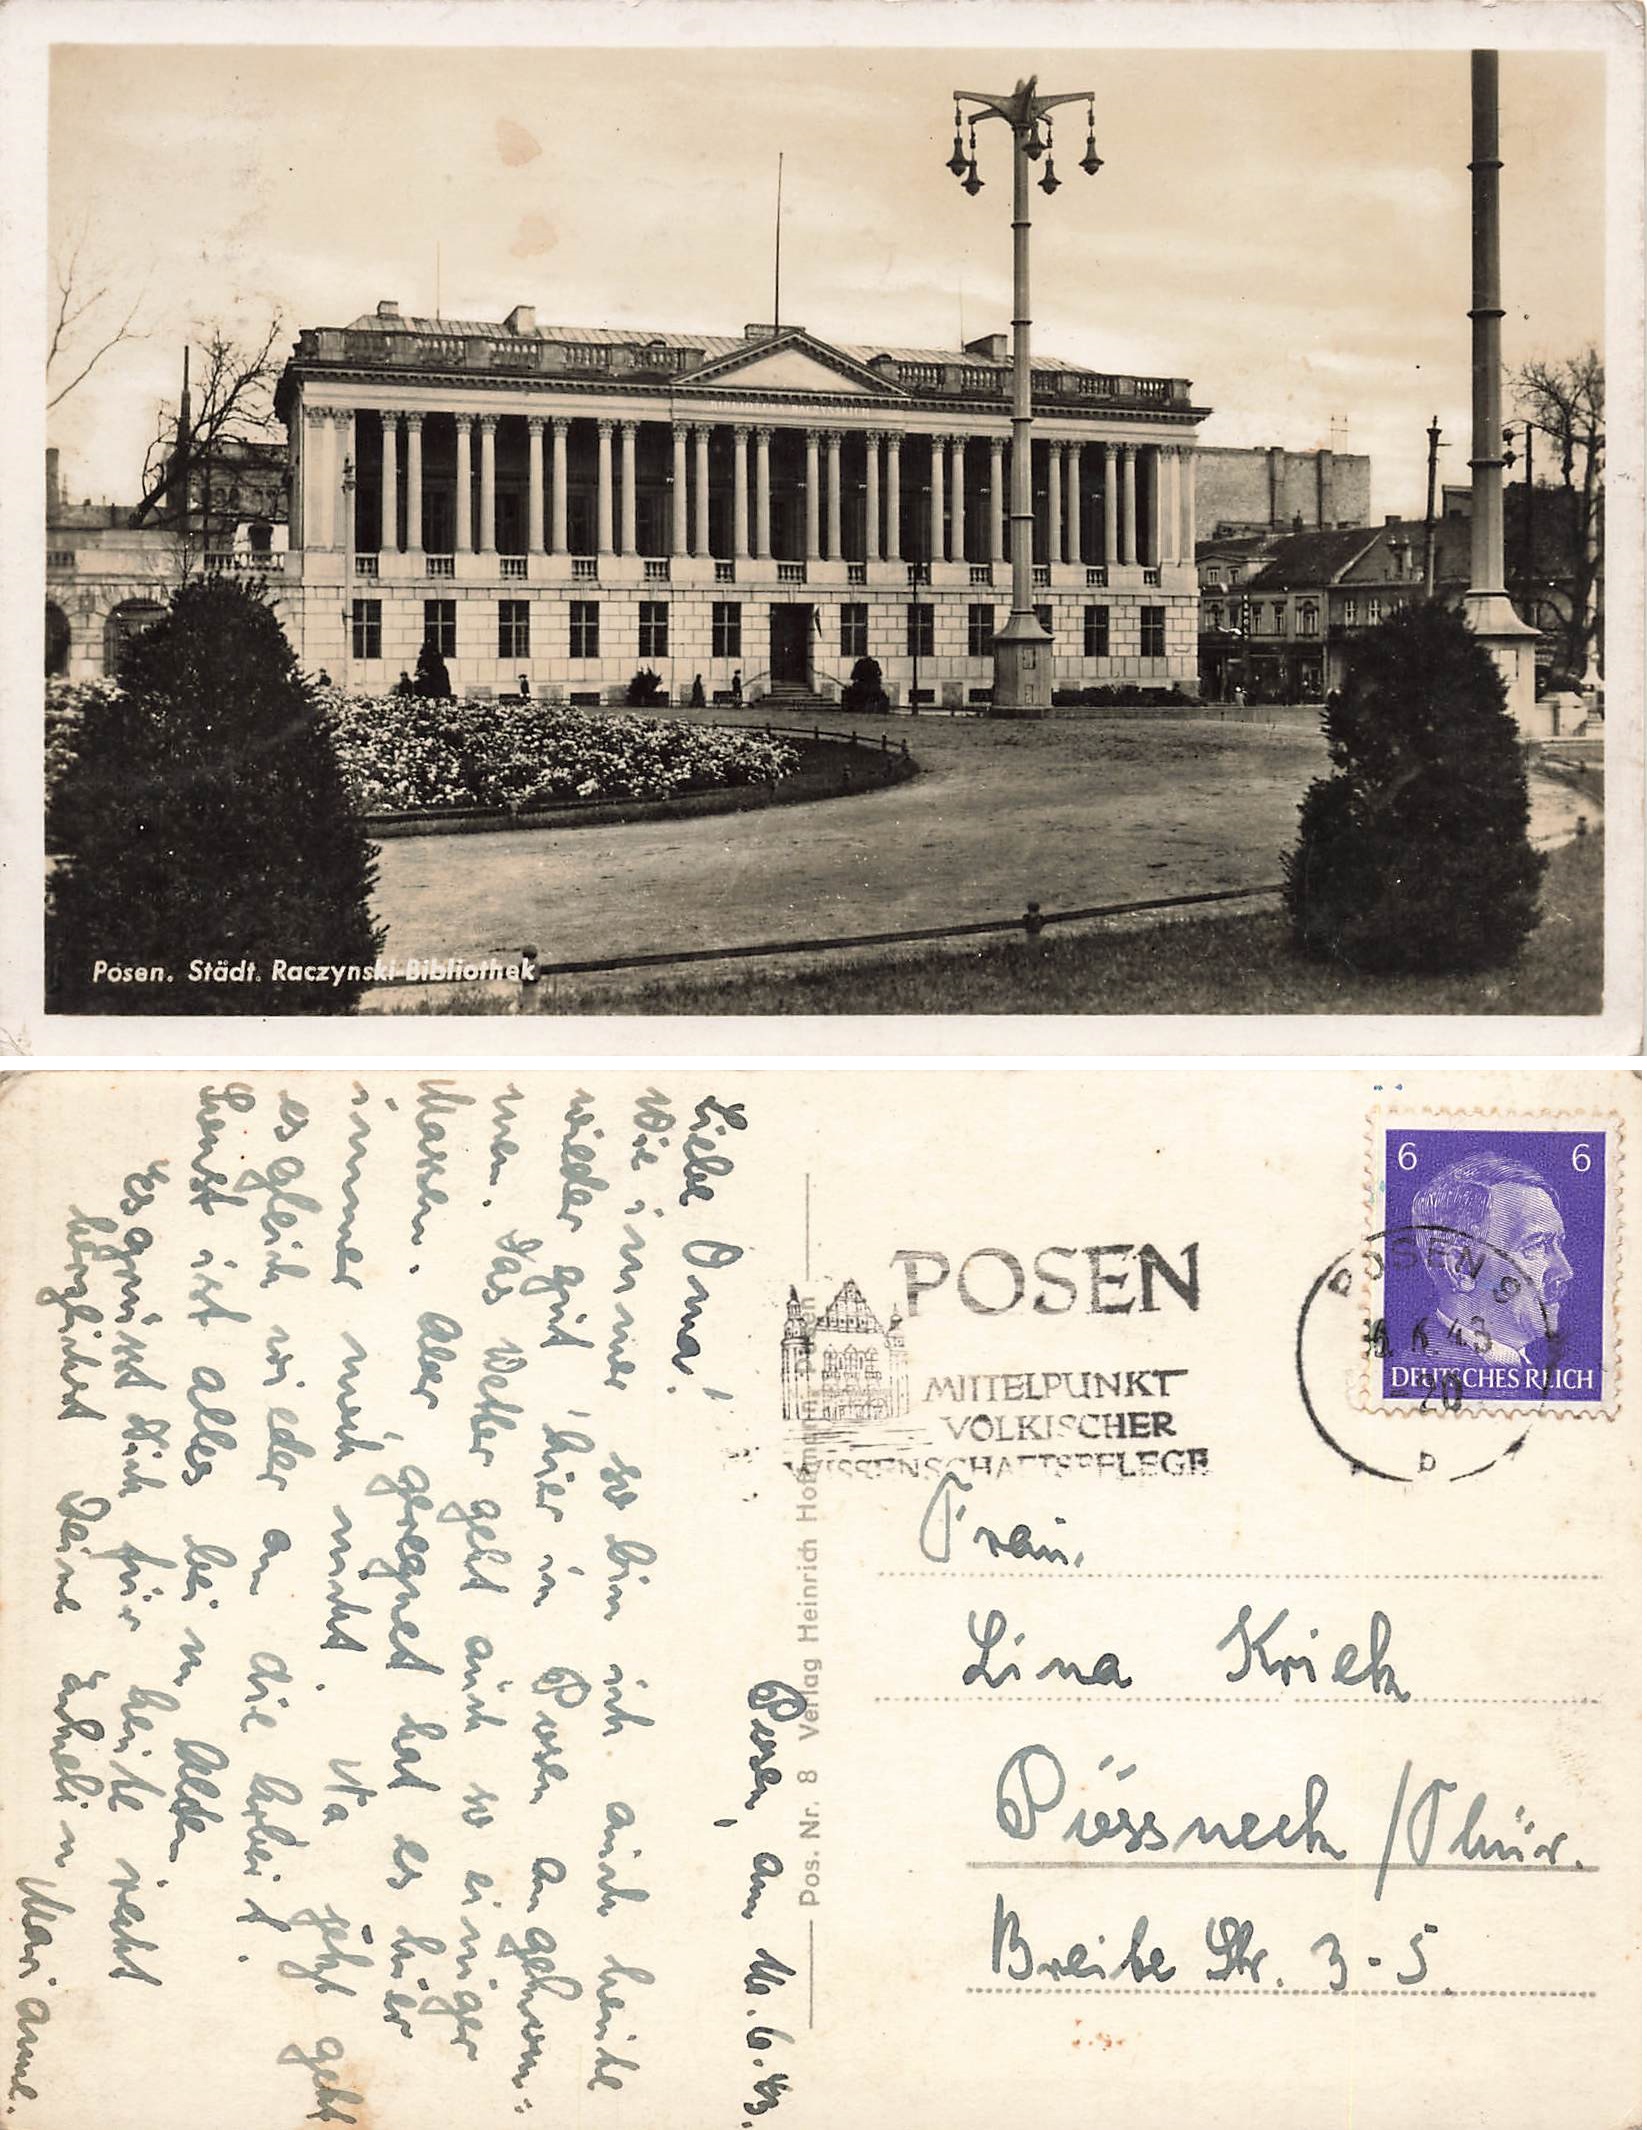 Posen. Städt. Raczynski-Bibliothek
Posen, am 16.6.43.
Liebe Oma!
Wie immer so bin ich auch heute
wieder gut hier in Posen angekom=
men. Das Wetter geht auch so einiger
Massen. Aber geregnet hat es hier
immer noch nicht. Na jetzt geht
es gleich wieder an die Arbeit.
Sonst ist alles beim Alten
Es grüsst Dich für heute recht
herzlichst Deine Enkelin Marianne.
Pos. Nr. 8 Verlag Heinrich Hoffmann, Posen
POSEN
MITTELPUNKT
VOLKISCHER
WISSENSCHAFTSPFLEGE
6 6
DEUTSCHES REICH
POSEN 9
6.43
-20
b
Frau.
Lina Kriek
Pössneck /Thür.
Breite Str. 3-5.